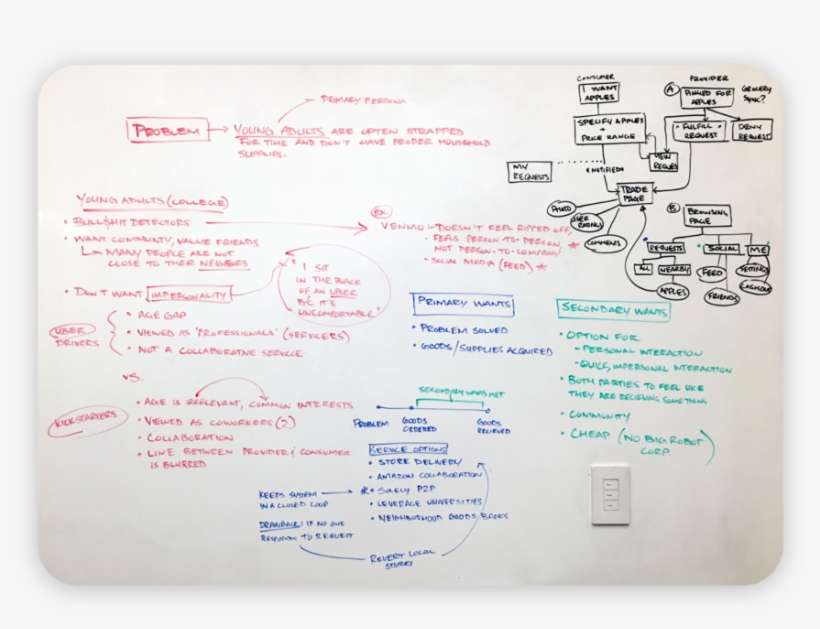 PRIMARY PERSONA
PROBLEM
YOUNG ADULTS ARE OFTEN STRAPPED
FOR TIME AND DON'T HAVE PROPER HOUSEHOLD
SUPPLIES.
YOUNG ADULTS (COLLEGE)
• BULLSHIT DETECTORS
• WANT COMMUNITY, VALUE FRIENDS
MANY PEOPLE ARE NOT
CLOSE TO THEIR NEIGHBORS
• DON'T WANT IMPERSONALITY
"I SIT
IN THE BACK
OF AN UBER
B/C IT'S
UNCOMFORTABLE"
UBER
DRIVERS
• AGE GAP
• VIEWED AS 'PROFESSIONALS' (SERVICERS)
• NOT A COLLABORATIVE SERVICE
VS.
KICKSTARTERS
• AGE IS IRRELEVANT, COMMON INTERESTS
• VIEWED AS COWORKERS (?)
• COLLABORATION
• LINE BETWEEN PROVIDER/CONSUMER
IS BLURRED
EX.
VENMO - DOESN'T FEEL RIPPED OFF,
FEELS PERSON-TO-PERSON,
NOT PERSON-TO-COMPANY
- SOCIAL MEDIA (FEED)
PRIMARY WANTS
• PROBLEM SOLVED
• GOODS/SUPPLIES ACQUIRED
SECONDARY WANTS MET
PROBLEM
GOODS
ORDERED
GOODS
RECIEVED
SERVICE OPTIONS
• STORE DELIVERY
• AMAZON COLLABORATION
• SOLELY P2P
• LEVERAGE UNIVERSITIES
• NEIGHBORHOOD GOODS
KEEPS SYSTEM
IN A CLOSED LOOP
DRAWBACK: IF NO ONE
RESPONDS TO REQUEST
REVERT LOCAL
STORE
SECONDARY WANTS
• OPTION FOR
- PERSONAL INTERACTION
- QUICK, IMPERSONAL INTERACTION
• BOTH PARTIES TO FEEL LIKE
THEY ARE RECIEVING SOMETHING
• COMMUNITY
• CHEAP (NO BIG ROBOT
CORP.)
CONSUMER
I WANT
APPLES
SPECIFY APPLES
+
PRICE RANGE
MY
REQUESTS
NOTIFIED
PROVIDER
A
PINGED FOR
APPLES
GROCERY
SYNC?
FULFILL
REQUEST
DENY
REQUEST
VIEW
REQUEST
TRADE
PAGE
PHOTO
USER
RATINGS
COMMENTS
B
BROWSING
PAGE
REQUESTS
SOCIAL
ME
ALL
NEARBY
APPLES
FEED
FRIENDS
SETTINGS
CASHOUT